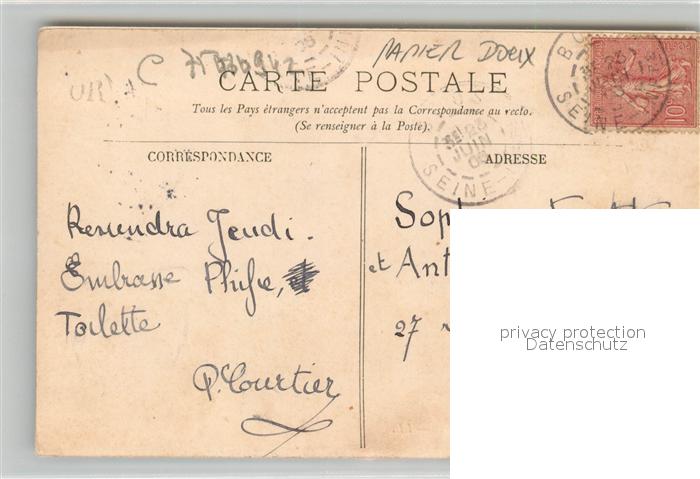 C
PAPIER DOUX
CARTE POSTALE
Tous les Pays étrangers n'acceptent pas la Correspondance au recto.
(Se renseigner à la Poste).
SEINE
JUIN
SEINE
10
CORRESPONDANCE
ADRESSE
Reviendra Jeudi.
Embrasse
Toilette
P. Courtier
Sop
et Ant
27
privacy protection
Datenschutz